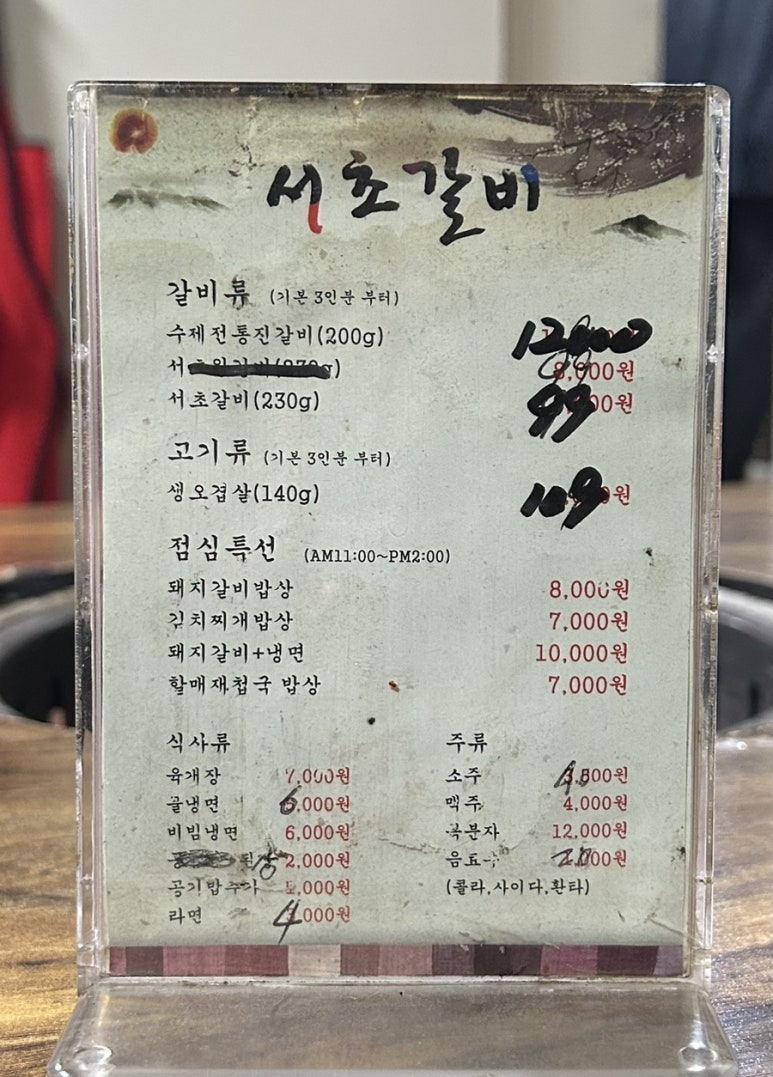 서초갈비
갈비류 (기본 3인분 부터)
수제전통진갈비(200g) 12000
8,000원
서초갈비(230g) 99 00원
고기류 (기본 3인분 부터)
생오겹살(140g) 109 원
점심특선 (AM11:00~PM2:00)
돼지갈비밥상 8,000원
김치찌개밥상 7,000원
돼지갈비+냉면 10,000원
할매재첩국 밥상 7,000원
식사류
육개장 7,000원
물냉면 6,000원
비빔냉면 6,000원
2,000원
공기밥추가 1,000원
라면 4,000원
주류
소주 4,000원
맥주 4,000원
복분자 12,000원
음료수 2,000원
(콜라,사이다,환타)